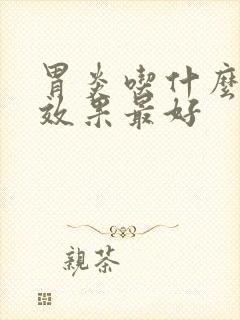 胃炎喫什麼
效果最好
親茶